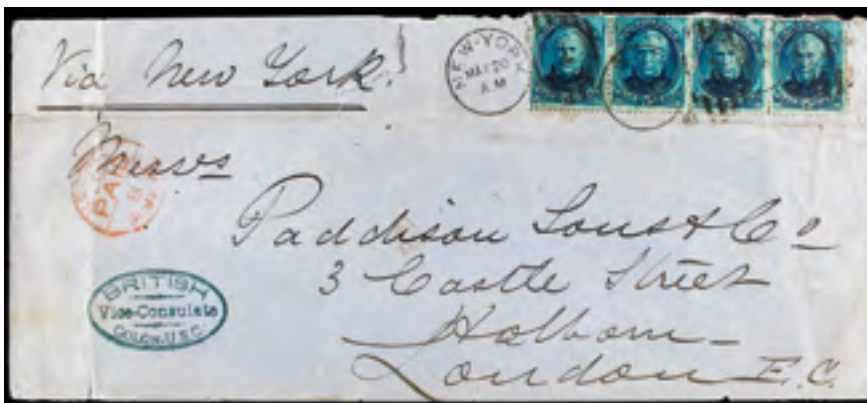 Via New York.
NEW-YORK
MAY 20
A.M
Messrs
PAID
Paddison Sons & Co
3 Castle Street
Holborn
London E.C.
BRITISH
Vice-Consulate
COLON-U.S.C.